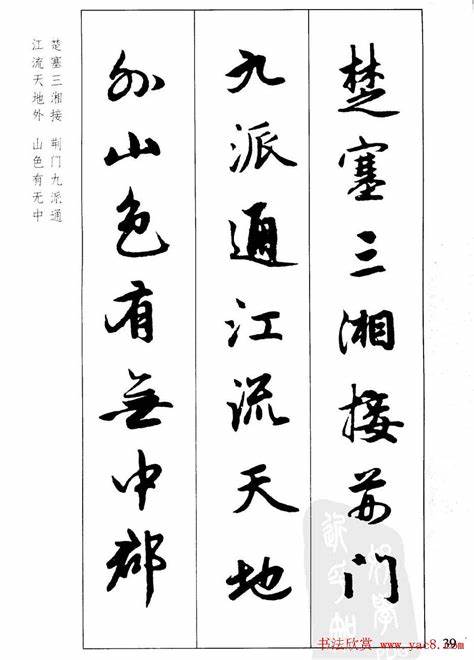 楚塞三湘接荊門
九派通江流天地
外山色有無中郡
楚塞三湘接 荆门九派通
江流天地外 山色有无中
39
书法欣赏 www.yac8.com